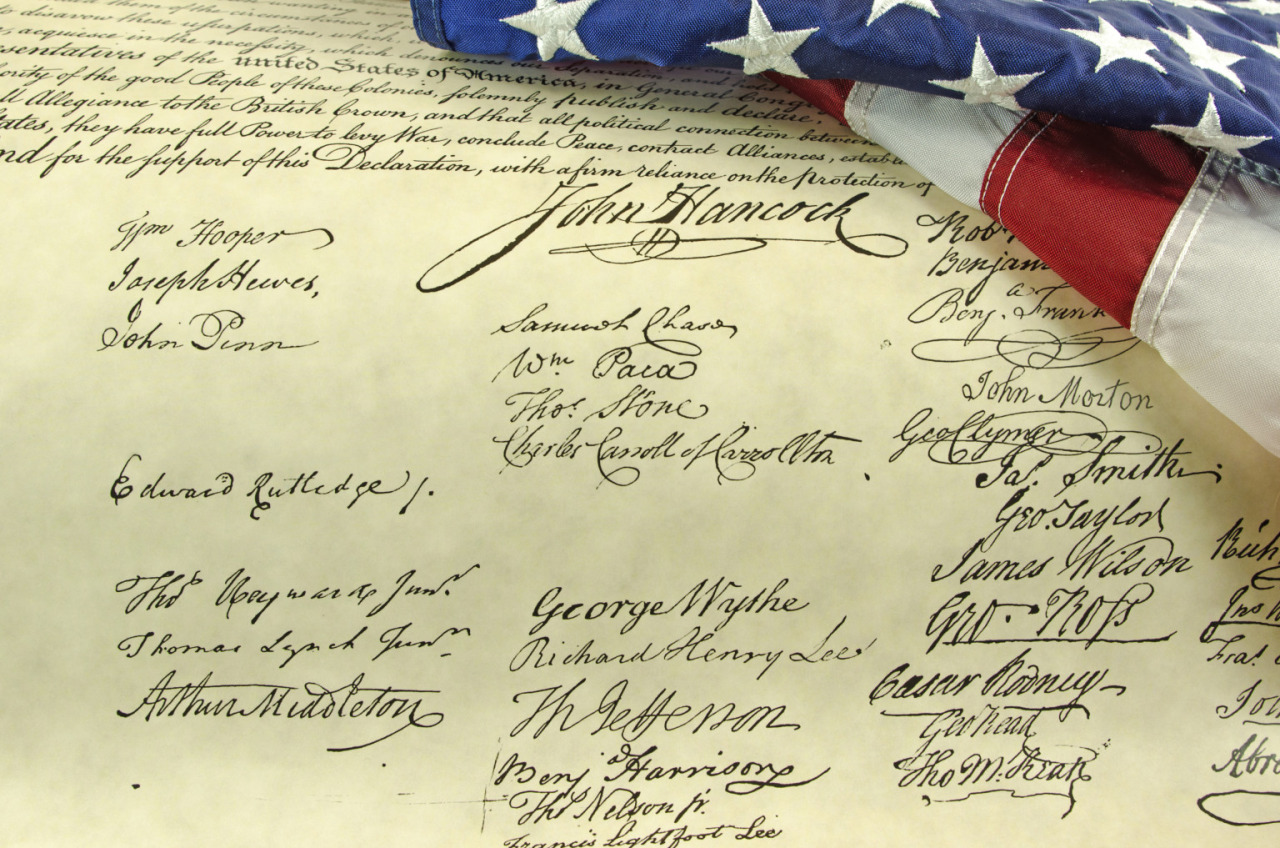 to disavow these usurpations, which
acquiesce in the necessity, which denounces our Separation, and hold
esentatives of the united States of America, in General Congr
ority of the good People of these Colonies, solemnly publish and declare,
ll Allegiance to the British Crown, and that all political connection between
tates, they have full Power to levy War, conclude Peace, contract Alliances, establ
nd for the support of this Declaration, with a firm reliance on the protection of
John Hancock
Wm Hooper
Joseph Hewes,
John Penn
Edward Rutledge /.
Thos Heyward Junr.
Thomas Lynch Junr.
Arthur Middleton
Samuel Chase
Wm. Paca
Thos. Stone
Charles Carroll of Carrollton
George Wythe
Richard Henry Lee
Th Jefferson
Benj Harrison
Thos Nelson jr.
Francis Lightfoot Lee
Rob
Benjam
Benj. Frank
John Morton
Geo Clymer
Jas. Smith.
Geo. Taylor
James Wilson
Geo. Ross
Caesar Rodney
Geo Read
Tho M:Kean
Rich
Jno
Fras.
Abra